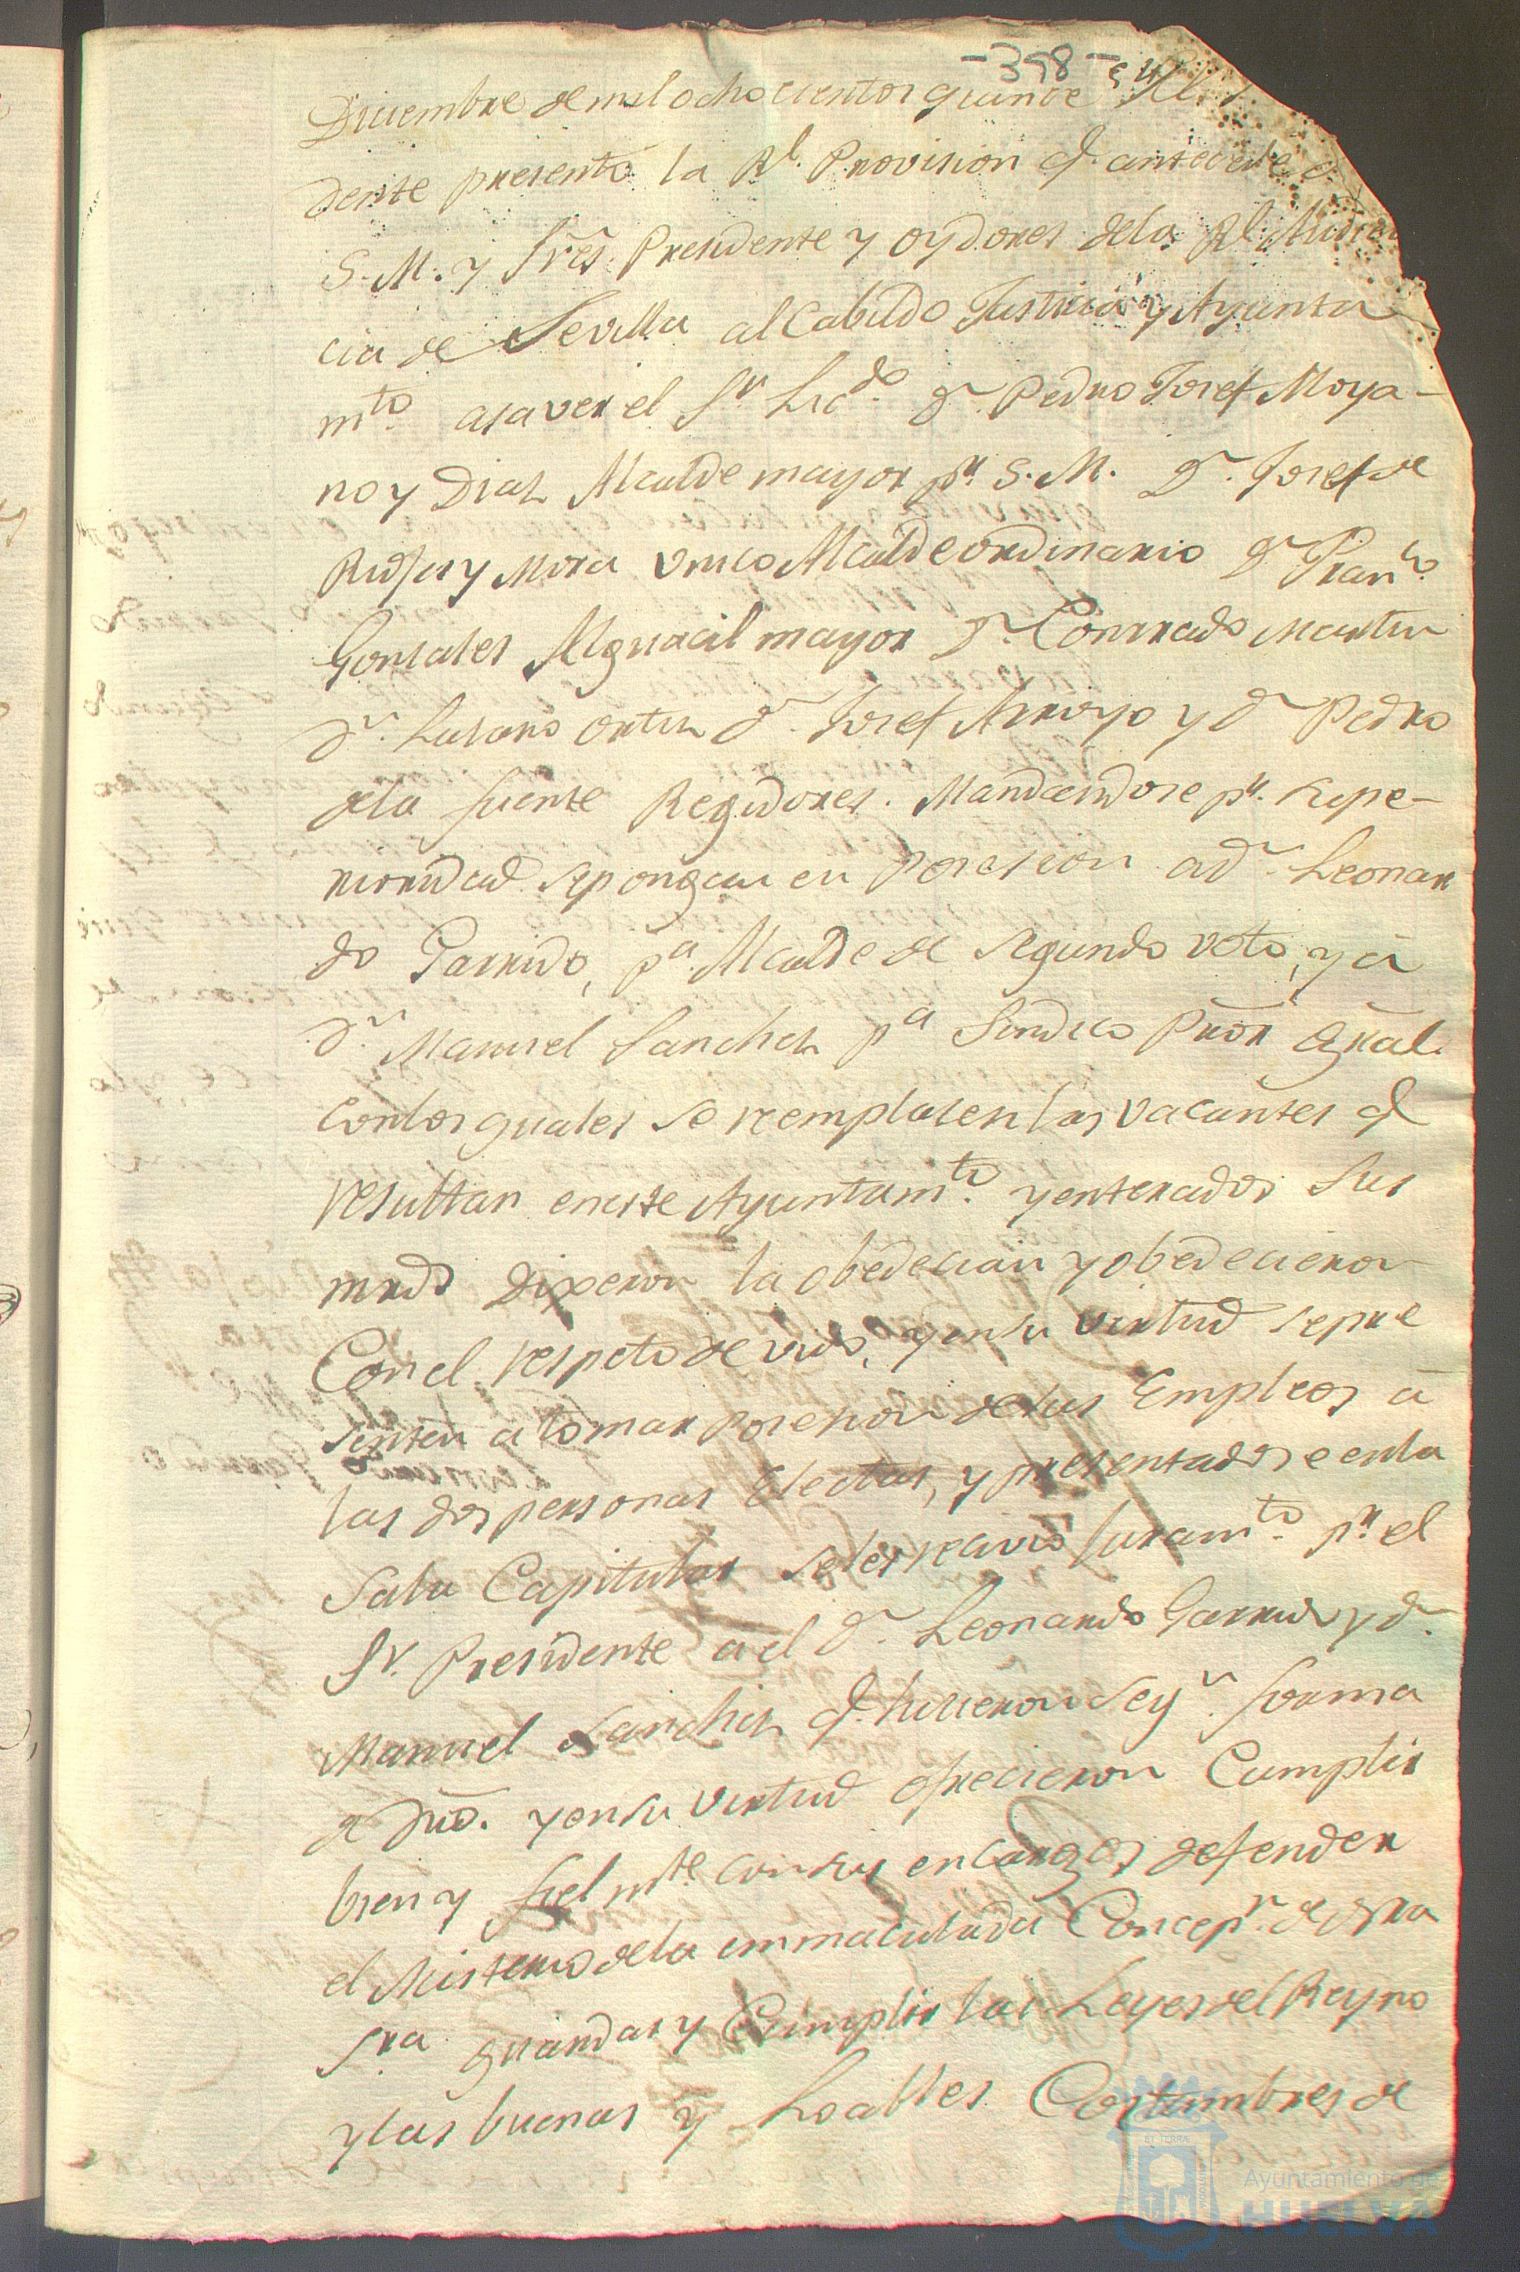 -358-
Diciembre de mil ochocientos quince el S.r
dente presentó la R.l Provision q.e antecede d
S.M. y Sres. Presidente y oydores dela R.l Audien
cia de Sevilla al Cabildo Justicia y Ayunta
m.to asaver el S.r Lic.do D.n Pedro Josef Moya-
no y Diaz Alcalde mayor p.r S.M. D.n Josef de
y Mora unico Alcalde ordinario D.n Fran.co
Gonsales Alguacil mayor D.n Conrrado Martin
D.n Lasaro Ortiz D.n Josef Arroyo y D.n Pedro
dela fuente Regidores. Mandandose p.r supe-
rioridad se pongan en posesion a D.n Leonar
do Garrido, p.a Alcalde de segundo voto, y á
D.n Manuel Sanchez p.a Sindico Pror Gral
con los quales se remplasen las vacantes q
resultan eneste Ayuntam.to y enterados sus
mrds dixeron la obedecian y obedecieron
Con el respeto devido, y en su virtud sepre
senten a tomar posesion desus Empleos á
las dos personas electas, y presentadose enla
Sala Capitular seles recivio juram.to p.r el
S.r Presidente a el D.n Leonardo Garrido y D.n
Manuel Sanchez q.e hicieron seg.n forma
de dro. y en su virtud ofrecieron Cumplir
bien y fielm.te con sus encargos defender
el Misterio dela immaculada Concep.n de nra
Sra guardar y Cumplir las Leyes del Reyno
y las buenas y Loables Costumbres de
Ayuntamiento de
HUELVA